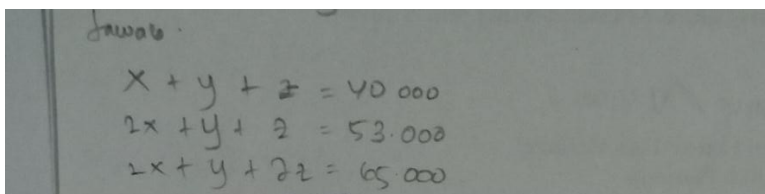 Jawab.
x + y + z = 40 000
2x + y + z = 53.000
2x + y + 2z = 65.000